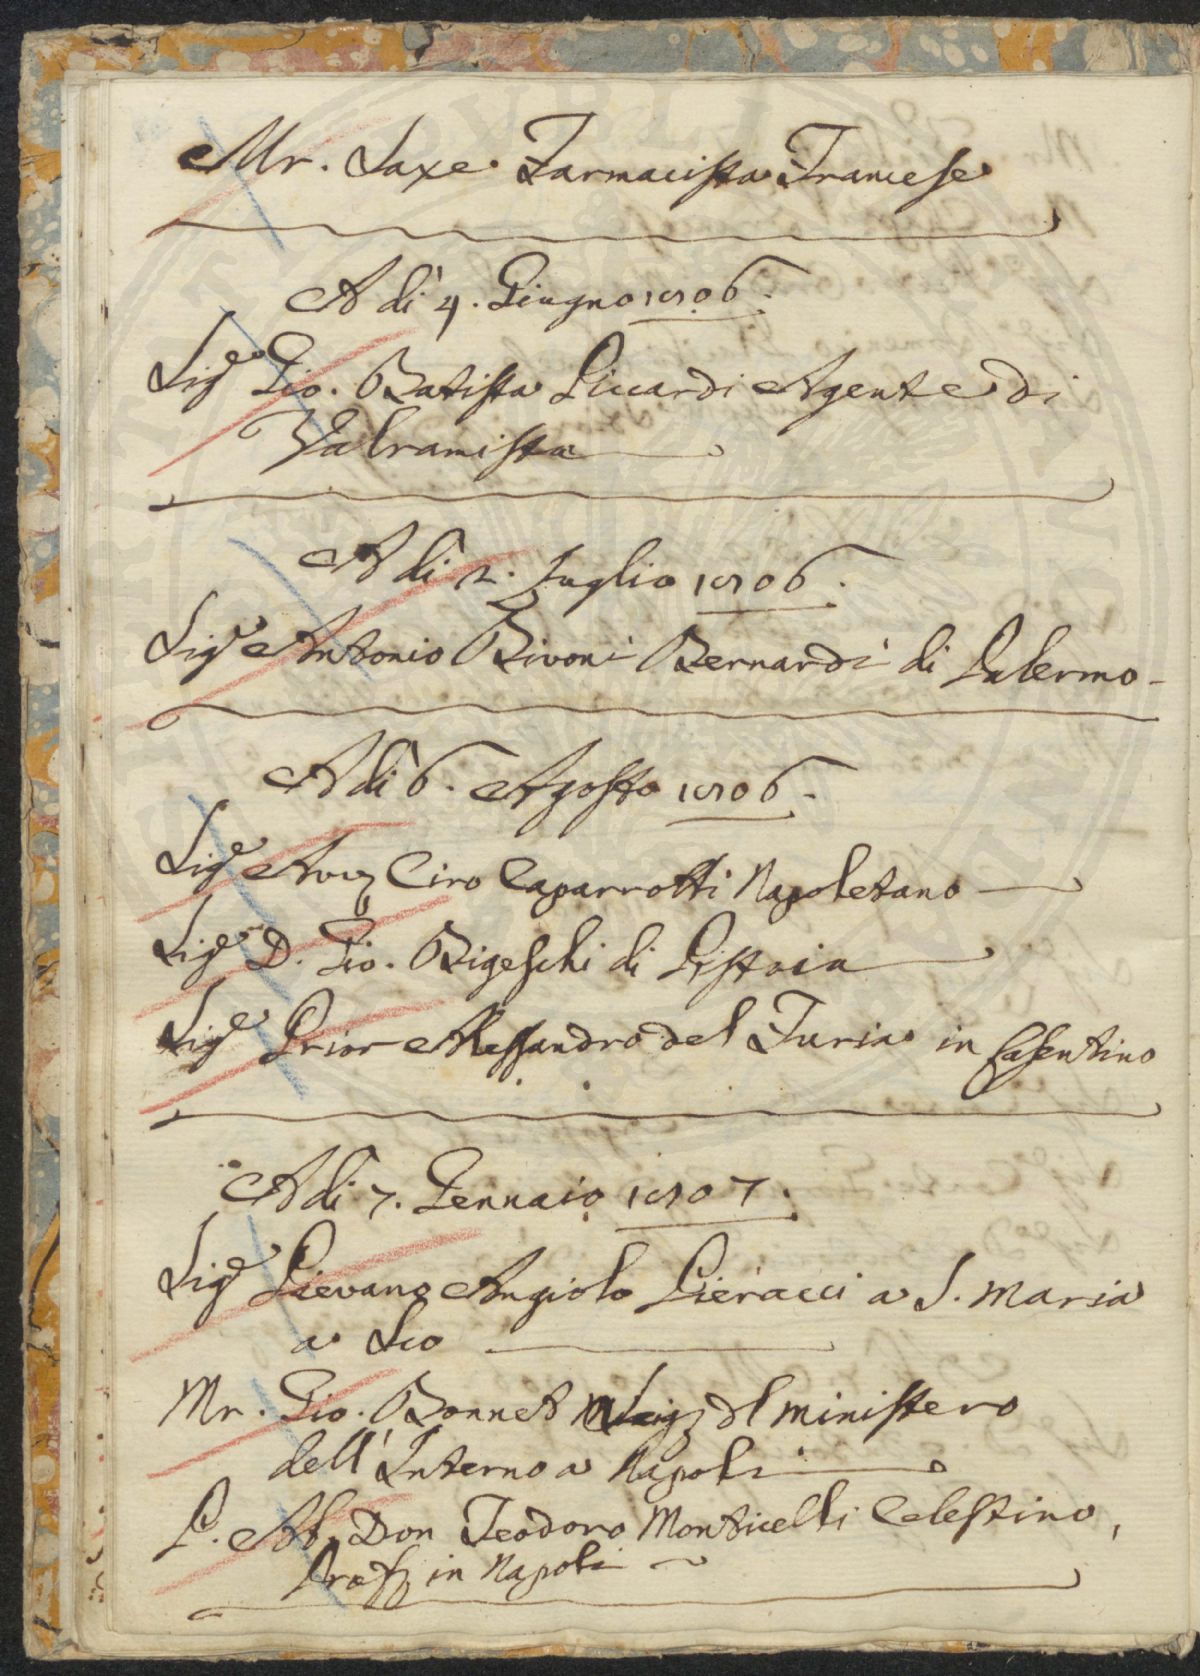 Mr. Saxe Farmacista Francese
A dì 4. Giugno 1806.
Sigr Gio. Batista Piccardi Agente di
Valramista
A dì 2. Luglio 1806.
Sigr Antonio Bivoni Bernardi di Palermo
A dì 6. Agosto 1806.
Sigr Avv. Ciro Caparrotti Napoletano
Sigr D. Gio. Bigeschi di Pistoia
Sigr Prior Alessandro del Furia in Casentino
A dì 7. Gennaio 1807.
Sigr Pievano Angiolo Pieracci a S. Maria
a Sco
Mr. Gio. Bonnet dl ministero
dell' Interno a Napoli
P. Ab. Don Teodoro Monticelli Celestino,
Prof. in Napoli